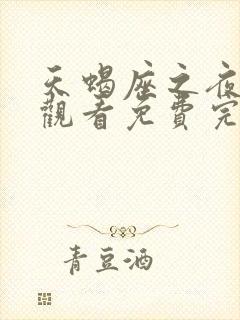 天蝎座之夜
觀看免費完
青豆酒